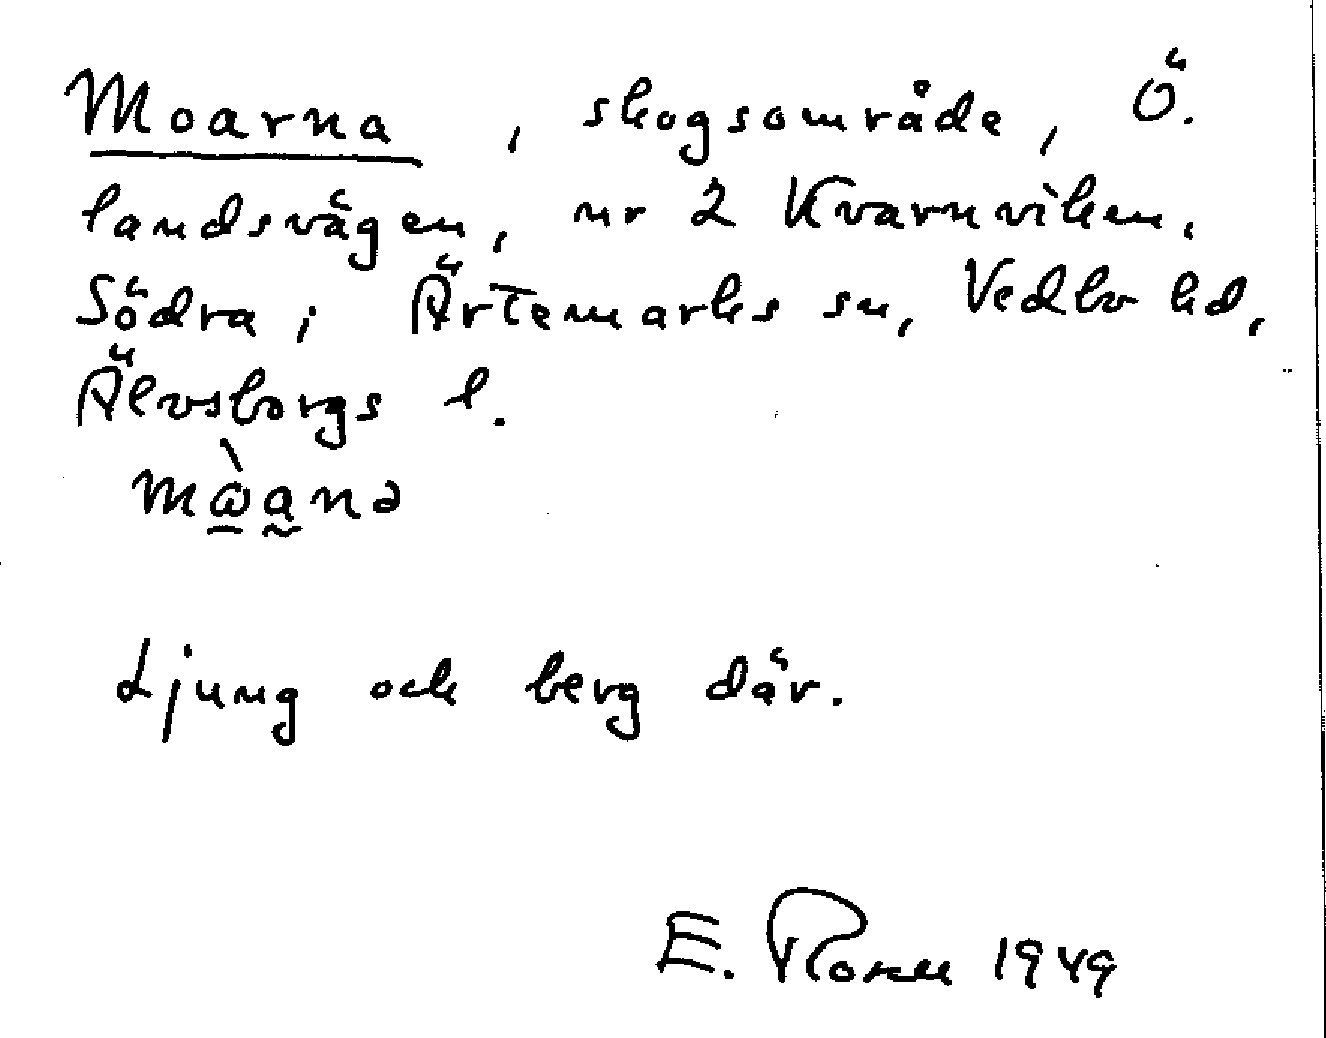 Moarna, skogsområde, Ö.
landsvägen, nr 2 Kvarnviken,
Södra i Ärtemarks sn, Vedbo hd,
Älvsborgs l.
Ljung och berg där.
E. Rosell 1949